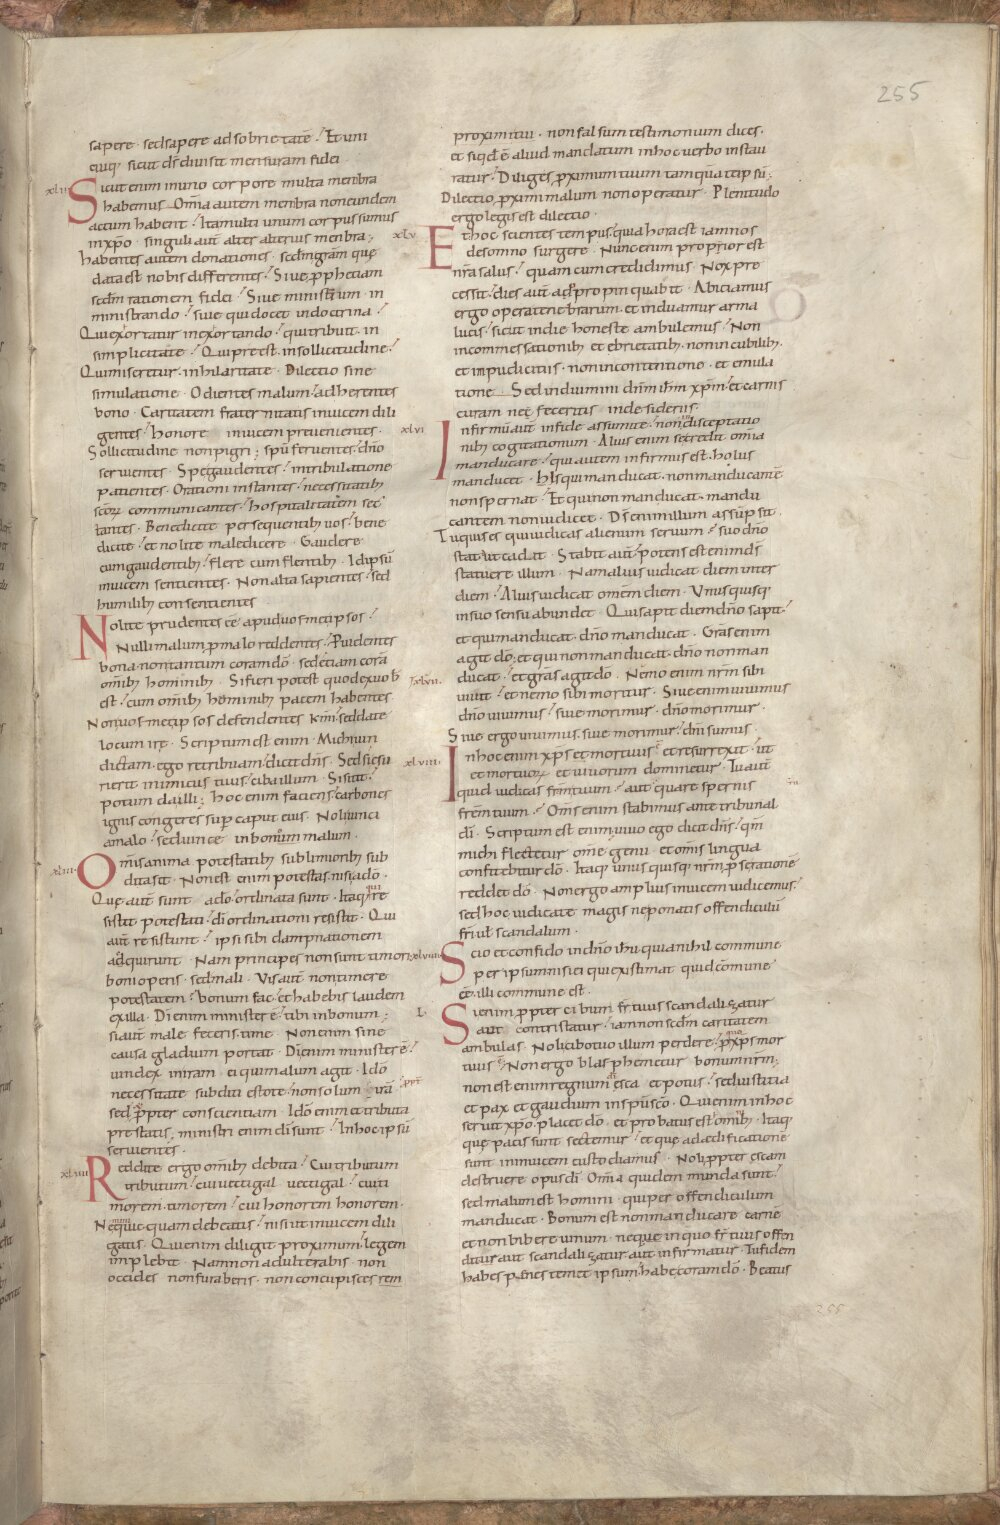 255
sapere · sed sapere ad sobrietatē · Et uni
cuiq; sicut dš diuisit mensuram fidei
xlii Sicut enim in uno corpore multa menbra
habemus · Omia autem menbra non eundem
actum habent · Ita multi unum corpus sumus
in xp̄o · singuli aut̄ alter alterius menbra ;
habentes autem donationes · sed̄m gram̄ quę
data est nobis differentes · Siue p̱phetiam
sed̄m rationem fidei · Siue ministr̄ium · in
ministrando · siue qui docet in doctrina ·
Qui exortatur in exortando · qui tribuit · in
simplicitate · Qui pręest · in sollicitudine ·
Qui miseretur · in hilaritate · Dilectio sine
simulatione · Odientes malum · adherentes
bono · Caritatem fraternitatis inuicem dili
gentes · honore inuicem preuenientes ·
Sollicitudine non pigri ; spū feruentes · dn̄o
seruientes · Spe gaudentes · in tribulatione
patientes · Orationi instantes · necessitatib;
scōrꝝ communicantes · hospitalitatem sec
tantes · Benedicite persequentib; uos · bene
dicite · et nolite maledicere · Gaudere
cum gaudentib; · flere cum flentibus · Idipsū
inuicem sentientes · Non alta sapientes · sed
humilib; consentientes ·
Nolite prudentes eē apud uosmetipsos ·
Nulli malum p̱ malo reddentes · Puidentes
bona · non tantum coram dō · sed etiam corā
omīb; hominib; · Si fieri potest quod ex uob
est · cum omīb; hominib; pacem habentes
Non uosmetipsos defendentes km̄i · sed date
locum irę · Scriptum est enim · Michi uin
dictam · ego retribuam · dicit dn̄s · Sed si esu
rierit inimicus tuus · ciba illum · Si sitit ·
potum da illi ; hoc enim faciens · carbones
ignis congeres sup̱ caput eius · Noli uinci
a malo · sed uince in bono malum ·
xliii Omīs anima potestatib; sublimiorib; sub
dita sit · Non est enim potestas nisi a dō ·
Quę aut̄ sunt a dō ordinata sunt · Itaq; qui re
sistit potestati · dī ordinationi resistit · Qui
aut̄ resistunt · ipsi sibi dampnationem
adquirunt · Nam principes non sunt timori
boni operis · sed mali · Vis aut̄ non timere
potestatem · bonum fac · et habebis laudem
ex illa · Dī enim minister ē · tibi in bonum ;
si aut̄ male feceris · time · Non enim sine
causa gladium portat · Dī enim minister ē ·
uindex in iram · ei qui malum agit · Idō
necessitate subditi estote · non solum p̱p̱t iram
sed p̱pter conscientiam · Idō enim et tributa
prestatis · ministri enim dī sunt · In hoc ipsū
seruientes ·
xliiii Reddite ergo omīb; debita · Cui tributum
tributum · cui uectigal uectigal · cui ti
morem · timorem · cui honorem honorem ·
Nemini quicquam debeatis · nisi ut inuicem dili
gatis · Qui enim diligit proximum · legem
impleuit · Nam non adulterabis · non
occides non furaberis · non concupisces rem
proximi tui · non falsum testimonium dices ·
et siqd̄ ē aliud mandatum in hoc uerbo instau
ratur · Diliges p̱ximum tuum tamquam te ipsū ;
Dilectio p̱ximi malum non operatur · Plenitudo
ergo legis est dilectio ·
xlv Et hoc scientes tempus · quia hora est iam nos
de somno surgere · Nunc enim proprior est
nr̄a salus · quam cum credidimus · Nox pre
cessit · dies aut̄ adp̱ropinquabit · Abiciamus
ergo opera tenebrarum · et induamur arma
lucis · sicut in die honeste ambulemus · Non
in commessationib; et ebrietatib; · non in cubilib;
et impudicitiis · non in contentione · et emula
tione Sed induimini dn̄m ihm̄ xp̄m · et carnis
curam nec̨ feceritis in desideriis
xlvi Infirmū aut̄ in fide assumite · non in disceptatio
nib; cogitationum · Alius enim se credit omīa
manducare · qui autem infirmus est · holus
manducet · His qui manducat · non manducantē
non spernat · Et qui non manducat · mandu
cantem non iudicet · Dš enim illum assūpsit ·
Tu quis es qui iudicas alienum seruum · suo dn̄o
stat ut cadat · Stabit aut̄ · potens est enim dš
statuere illum · Nam alius iudicat diem inter
diem · Alius iudicat omēm diem · Vnusquisq;
in suo sensu abundet · Qui sapit diem dn̄o sapit ·
et qui manducat · dn̄o manducat · Gra͞s enim
agit dō · et qui non manducat · dn̄o non man
xlvii ducat · et gra͞s agit dō · Nemo enim nr̄m sibi
uiuit · et nemo sibi moritur · Siue enim uiuimus
dn̄o uiuimus · siue morimur · dn̄o morimur ·
Siue ergo uiuimus · siue morimur · dn̄i sumus ·
xlviii In hoc enim xp̄s et mortuus ē et resurrexit · ut
et mortuorꝝ et uiuorum dominetur · Tu aut̄
quid iudicas fr̄em tuum · aut quare spernis
fr̄em tuum · Om̄s enim stabimus ante tribunal
dī · Scriptum est enim uiuo ego dicit dn̄s · qm̄
michi flectetur om̄e genu · et omīs lingua
confitebitur dō · Itaq; unusquisq; nr̄m p̱ se rationē
reddet dō · Non ergo amplius inuicem iudicemus ·
sed hoc iudicate magis ne ponatis offendiculū
fr̄i uł scandalum ·
xlviiii Scio et confido in dn̄o ihū quia nihil commune
per ipsum nisi ei qui existimat quid cōmune
eē · illi commune est ·
L Si enim p̱pter cibum fr̄ tuus scandalizatur
aut contristatur · iam non sed̄m caritatem
ambulas · Noli cibo tuo illum perdere · p̱ quo xp̄s mor
tuus ē · Non ergo blasphemetur bonum nr̄m ;
non est enim regnum dī esca et potus · sed iustitia
et pax et gaudium in spū scō · Qui enim in hoc
seruit xp̄o · placet dō · et probatus est omīb; · Itaq;
quę pacis sunt sectemur · et quę ad ędificationē
sunt in inuicem custodiamus · Noli p̱pter escam
destruere opus dī · Omīa quidem munda sunt ·
sed malum est homini · qui per offendiculum
manducat · Bonum est non manducare carnē
et non bibere uinum · neque in quo fr̄ tuus offen
ditur aut scandalizatur aut infirmatur · Tu fidem
habes penes temet ipsum · habe coram dō · Beatus
255